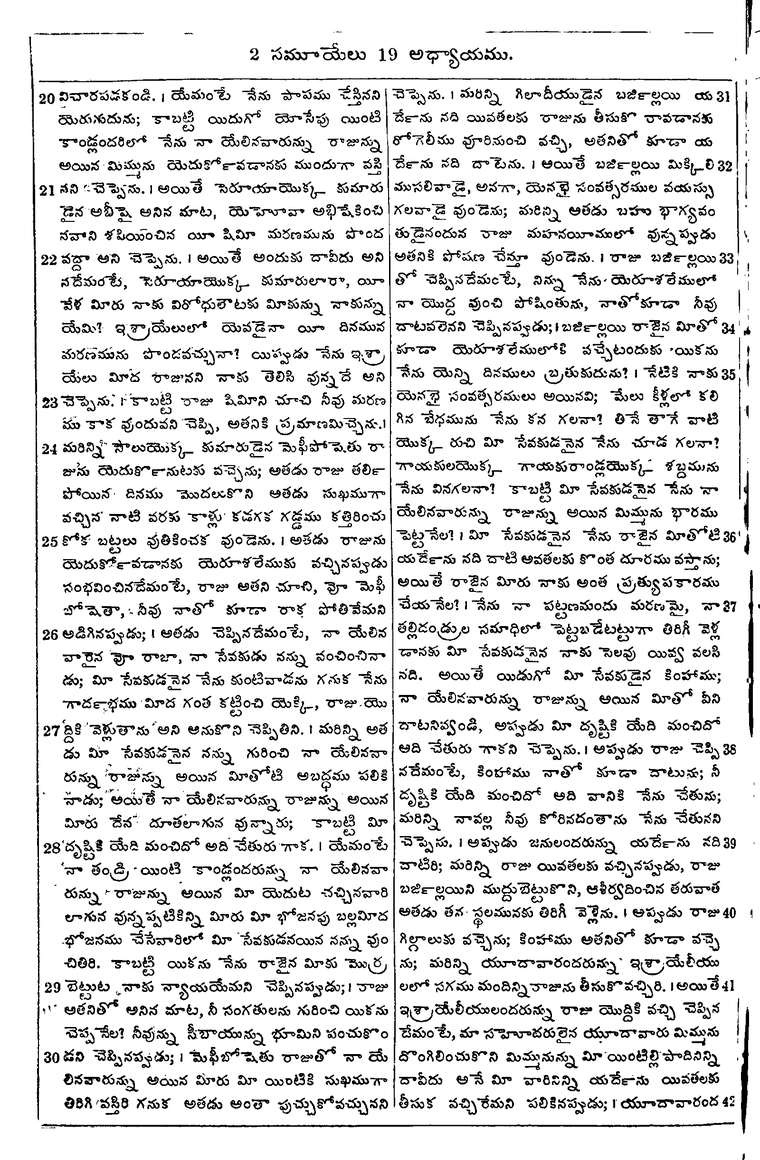 2 సమూయేలు 19 అధ్యాయము.
20 విచారపడకండి. । యేమంటే నేను పాపము చేస్తినని
యెరుగుదును; కాబట్టి యిదుగో యోసేపు యింటి
కాండ్లందరిలో నేను నా యేలినవారున్ను రాజున్ను
అయిన మిమ్మును యెదుర్కోవడానకు ముందుగా వస్తి
21 నని చెప్పెను. । అయితే సెరూయాయొక్క కుమారు
డైన అబీషై అనిన మాట, యెహోవా అభిషేకించి
నవాని శపియించిన యీ షిమీ మరణమును పొంద
22 వద్దా అని చెప్పెను. । అయితే అందుకు దావీదు అని
నదేమంటే, సెరూయాయొక్క కుమారులారా, యీ
వేళ మీరు నాకు విరోధులౌటకు మీకున్ను నాకున్ను
యేమి? ఇశ్రాయేలులో యెవడైనా యీ దినమున
మరణమును పొందవచ్చునా? యిప్పుడు నేను ఇశ్రా
యేలు మీద రాజునని నాకు తెలిసి వున్నదే అని
23 చెప్పెను. । కాబట్టి రాజు షిమీని చూచి నీవు మరణ
ము కాక వుందువని చెప్పి, అతనికి ప్రమాణమిచ్చెను.।
24 మరిన్ని సౌలుయొక్క కుమారుడైన మెఫీబోషెతు రా
జును యెదుర్కొనుటకు వచ్చెను; అతడు రాజు తర్లి
పోయిన దినము మొదలుకొని అతడు సుఖముగా
వచ్చిన నాటి వరకు కాళ్లు కడగక గడ్డము కత్తిరించు
25 కోక బట్టలు వుతికించక వుండెను. । అతడు రాజును
యెదుర్కోవడానకు యెరూశలేముకు వచ్చినప్పుడు
సంభవించినదేమంటే, రాజు అతని చూచి, వో మెఫీ
బోషెతా, నీవు నాతో కూడా రాక పోతివేమని
26 అడిగినప్పుడు; । అతడు చెప్పినదేమంటే, నా యేలిన
వారైన వో రాజా, నా సేవకుడు నన్ను వంచించినా
డు; మీ సేవకుడనైన నేను కుంటివాడను గనుక నేను
గార్దభము మీద గంత కట్టించి యెక్కి, రాజు యొ
27 ద్దికి వెళ్లుతాను అని అనుకొని చెప్పితిని. । మరిన్ని అత
డు మీ సేవకుడనైన నన్ను గురించి నా యేలినవా
రున్ను రాజున్ను అయిన మీతోటి అబద్ధము పలికి
నాడు; అయితే నా యేలినవారున్ను రాజున్ను అయిన
మీరు దేవ దూతలాగున వున్నారు; కాబట్టి మీ
28 దృష్టికి యేది మంచిదో అది చేతురు గాక. । యేమంటే
నా తండ్రి యింటి కాండ్లందరున్ను నా యేలినవా
రున్ను రాజున్ను అయిన మీ యెదుట చచ్చినవారి
లాగున వున్నప్పటికిన్ని మీరు మీ భోజనపు బల్లమీద
భోజనము చేసేవారిలో మీ సేవకుడనయిన నన్ను వుం
చితిరి. కాబట్టి యికను నేను రాజైన మీకు మొర్ర
29 బెట్టుట నాకు న్యాయయేమని చెప్పినప్పుడు;। రాజు
అతనితో అనిన మాట, నీ సంగతులను గురించి యికను
చెప్పనేల? నీవున్ను సీబాయున్ను భూమిని పంచుకొం
30 డని చెప్పినప్పుడు; । మెఫీబోషెతు రాజుతో నా యే
లినవారున్ను అయిన మీరు మీ యింటికి సుఖముగా
తిరిగి వస్తిరి గనుక అతడు అంతా పుచ్చుకోవచ్చునని
చెప్పెను. । మరిన్ని గిలాదీయుడైన బర్జిల్లయి య 31
ర్దేను నది యివతలకు రాజును తీసుకొ రావడానకు
రోగెలీము వూరినుంచి వచ్చి, అతనితో కూడా య
ర్దేను నది దాటెను. । ఆయితే బర్జిల్లయి మిక్కిలి 32
ముసలివాడై, అనగా, యెనభై సంవత్సరముల వయస్సు
గలవాడై వుండెను; మరిన్ని ఆతడు బహు భాగ్యవం
తుడైనందున రాజు మహనయీములో వున్నప్పుడు
అతనికి పోషణ చేస్తూ వుండెను. । రాజు బర్జిల్లయి 33
తో చెప్పినదేమంటే, నిన్ను నేను యెరూశలేములో
నా యొద్ద వుంచి పోషింతును, నాతోకూడా నీవు
దాటవలెనని చెప్పినప్పుడు;। బర్జిల్లయి రాజైన మీతో 34
కూడా యెరూశలేములోకి వచ్చేటందుకు యికను
నేను యెన్ని దినములు బ్రతుకుదును? । నేటికి నాకు 35
యెనభై సంవత్సరములు అయినవి; మేలు కీళ్లలో కలి
గిన బేధమును నేను కన గలనా? తినే తాగే వాటి
యొక్క రుచి మీ సేవకుడనైన నేను చూడ గలనా?
గాయకులయొక్క గాయకురాండ్లయొక్క శబ్దమును
నేను వినగలనా? కాబట్టి మీ సేవకుడనైన నేను నా
యేలినవారున్ను రాజున్ను అయిన మిమ్మును భారము
పెట్టనేల? । మీ సేవకుడనైన నేను రాజైన మీతోటి 36
యర్దేను నది దాటి అవతలకు కొంత దూరము వస్తాను;
అయితే రాజైన మీరు నాకు అంత ప్రత్యుపకారము
చేయనేల? । నేను నా పట్టణమందు మరణమై, నా 37
తల్లిదండ్రుల సమాధిలో పెట్టబడేటట్టుగా తిరిగీ వెళ్ల
డానకు మీ సేవకుడనైన నాకు సెలవు యివ్వ వలసి
నది. అయితే యిడుగో మీ సేవకుడైన కింహాము;
నా యేలినవారున్ను రాజున్ను అయిన మీతో వీని
దాటనివ్వండి, అప్పుడు మీ దృష్టికి యేది మంచిదో
ఆది చేతురు గాకని చెప్పెను. । అప్పుడు రాజు చెప్పి 38
నదేమంటే, కింహాము నాతో కూడా దాటును; నీ
దృష్టికి యేది మంచిదో అది వానికి నేను చేతును;
మరిన్ని నావల్ల నీవు కోరినదంతాను నేను చేతునని
చెప్పెను. । అప్పుడు జనులందరున్ను యర్దేను నది 39
దాటిరి; మరిన్ని రాజు యివతలకు వచ్చినప్పుడు, రాజు
బర్జిల్లయిని ముద్దుబెట్టుకొని, ఆశీర్వదించిన తరువాత
అతడు తన స్థలమునకు తిరిగీ వెళ్లెను. । అప్పుడు రాజు 40
గిల్గాలుకు వచ్చెను; కింహాము అతనితో కూడా వచ్చె
ను; మరిన్ని యూదావారందరున్ను ఇశ్రాయేలీయు
లలో సగము మందిన్ని రాజును తీసుకొవచ్చిరి. । అయితే 41
ఇశ్రాయేలీయులందరున్ను రాజు యొద్దికి వచ్చి చెప్పిన
దేమంటే, మా సహోదరులైన యూదావారు మిమ్మును
దొంగిలించుకొని మిమ్మునున్ను మీ యింటిల్లిపాదినిన్ని
దావీదు అనే మీ వారినిన్ని యర్దేను యివతలకు
తీసుక వచ్చిరేమని పలికినప్పుడు; । యూదావారంద 42